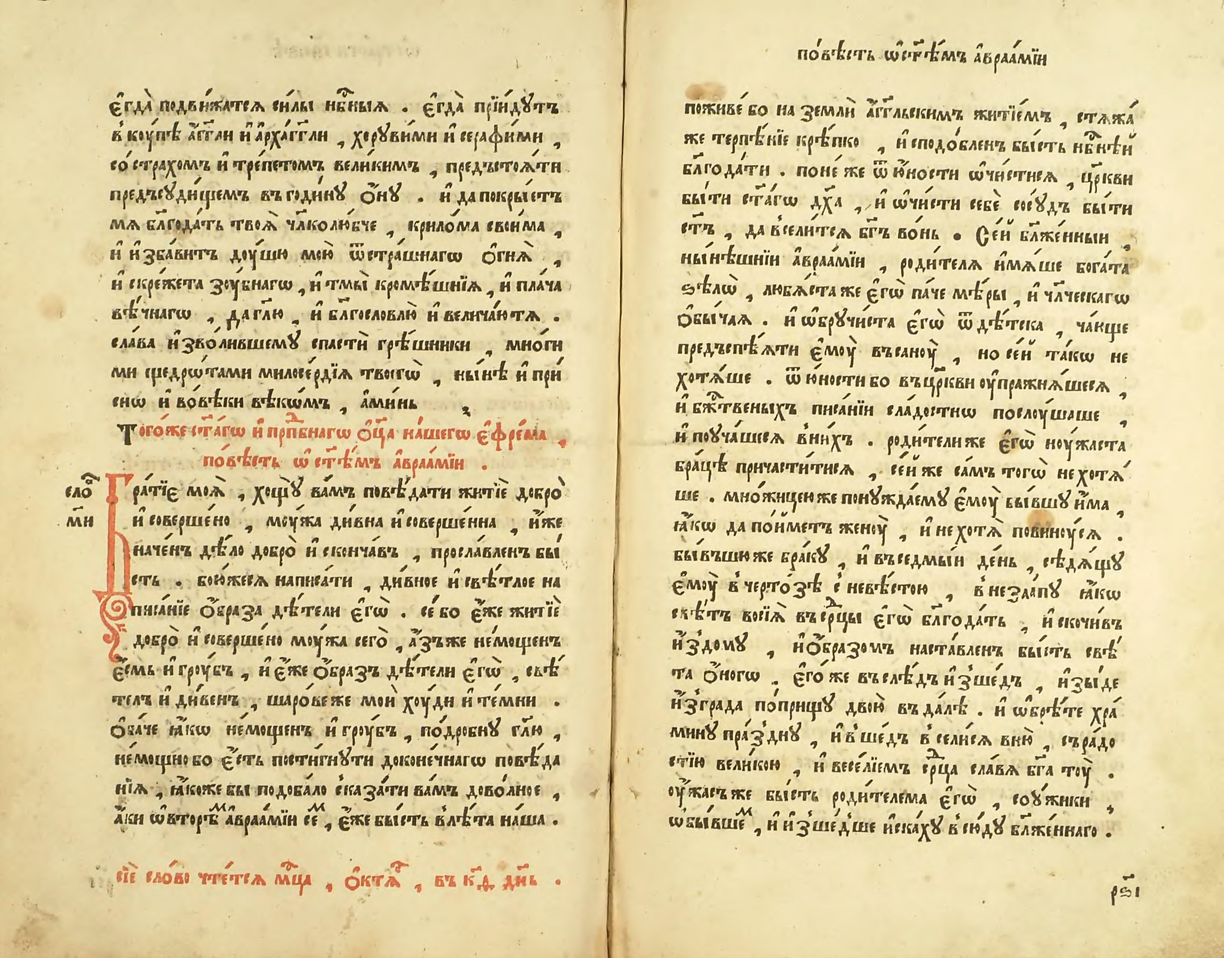 є҆гда̀ подви́жатсѧ си́лы нб҃ныѧ . є҆гда̀ прїи́дꙋтъ
в коу́пѣ а҆́гг҃ли и҆ а҆рха́гг҃ли , херꙋви́ми и҆ серафи́ми ,
со́ страхомъ и҆ тре́петомъ вели́кимъ , предъстоѧ́ти
предъсꙋди́щемъ въ годи́нꙋ ѻ҆́нꙋ . и҆ да покры́етъ
мѧ бл҃года́ть твоѧ̀ чл҃колю́бче , крило́ма свои́ма ,
и҆ и҆зба́витъ дꙋ́шю мою̀ ѿстра́шнагѡ ѻ҆гнѧ̀ ,
и҆ скре́жета зꙋ́бнагѡ , и҆ тмы̀ кромѣ́шнїѧ , и҆ пла́ча
вѣ́чнагѡ , да гл҃ю , и҆ бл҃гословлю̀ и҆ велича́ютѧ .
сла́ва и҆зво́лившемꙋ спастѝ грѣ́шники , мно́ги
ми щедро́тами милосе́рдїѧ твоегѡ̀ , ны́нѣ и҆ при́
снѡ и҆ во́ вѣки вѣкѡ́мъ , а҆ми́нь
Того́же ст҃а́гѡ и҆ прп҃бнагѡ ѻ҆ц҃а на́шегѡ є҆фре́ма ,
по́вѣсть ѡ҆ ст҃ѣ́мъ а҆враа́мїи .
сло́
м҃и
Бра́тїє моѧ̀ , хощꙋ̀ ва́мъ повѣ́дати житїѐ добро̀
и҆ соверше́но , мꙋ́жа ди́вна и҆ соверше́нна , и҆́же
наче́нъ дѣ́ло добро̀ и҆ сконча́въ , просла́вленъ бы́
сть . бою́жесѧ написа́ти , ди́вное и҆ свѣ́тлое на
писа́нїе ѻ҆́браза дѣ́тели є҆гѡ̀ . се́ бо є҆́же житїѐ
добро̀ и҆ соверше́но мꙋ́жа сего̀ , а҆́зъже не́мощенъ
є҆́смь и҆ грꙋ́бъ , и҆ є҆́же ѻ҆́бразъ дѣ́тели є҆гѡ̀ , свѣ́
телъ и҆ ди́венъ , ша́рове же моѝ хꙋ́ди и҆ те́мни .
ѻ҆ба́че ꙗ҆́кѡ не́мощенъ и҆ грꙋ́бъ , подро́бнꙋ гл҃ю ,
немо́щно бо є҆́сть пости́гнꙋти доконе́чнагѡ повѣ́да
нїѧ , ꙗ҆́коже бы подоба́ло сказа́ти ва́мъ дово́лное ,
а҆́ки ѡ҆ вторѣ́мъ а҆враа́мїи се́мъ , є҆́же бы́сть в лѣ́та на́ша .
сїѐ сло́во чте́тсѧ мц҃а , ѻ҆ктѧ́ , въ к҃д дн҃ь .
по́вѣсть ѡ҆ст҃ѣ́мъ а҆враа́мїи
поживе́ бо на землѝ а҆́гг҃льскимъ житїе́мъ , стѧжа́
же терпѣ́нїе крѣ́пко , и҆ сподо́бленъ бы́сть нб҃нѣй
бл҃года́ти . поне́ же ѿ ю҆́ности ѡ҆чи́стисѧ , цр҃кви
бы́ти ст҃а́гѡ дх҃а , и҆ ѡ҆чи́сти себѐ сосꙋ́дъ бы́ти
ст҃ъ , да вселитсѧ бг҃ъ во́нь . Се́й бл҃же́нныи
ны́нѣшнїи а҆враа́мїи , роди́телѧ и҆мѧ́ше бога́та
ѕѣ́лѡ , любѧ́ста же є҆гѡ̀ па́че мѣ́ры , и҆ чл҃ческагѡ
ѻ҆бы́чаѧ . и҆ ѡ҆брꙋчи́ста є҆гѡ̀ ѿ дѣ́тска , ча́юще
предъспѣ́ѧти є҆мꙋ̀ въ санꙋ̀ , но се́й та́кѡ не
хотѧ́ше . ѿ ю҆́ности бо въ цр҃кви ᲂу҆пражнѧ́шесѧ ,
и҆ бж҃твеныхъ писа́нїи сла́достнѡ послꙋ́шаше
и҆ поꙋча́шесѧ в ни́хъ . роди́тели же є҆гѡ̀ нꙋ́жаста
бра́цѣ причасти́тисѧ , се́й же са́мъ тогѡ̀ не хотѧ́
ше . мно́жицею же понꙋжда́емꙋ є҆мꙋ̀ бы́вшꙋ и҆́ма ,
ꙗ҆́кѡ да по́йметъ женꙋ̀ , и҆ не хотѧ̀ повинꙋ́сѧ .
бы́въшю же бра́кꙋ , и҆ въ се́дмыи де́нь , сѣдѧ́щꙋ
є҆мꙋ̀ в черто́зѣ с невѣ́стою , в неза́пꙋ ꙗ҆́кѡ
свѣ́тъ восїѧ̀ въ ср҃цы є҆гѡ̀ бл҃года́ть , и҆ скочи́въ
и҆з до́мꙋ , и҆ ѻ҆́бразомъ наста́вленъ бы́сть свѣ́
та ѻ҆́ногѡ . є҆го́же въ слѣ́дъ и҆зше́дъ , и҆зы́де
и҆з гра́да по́прищꙋ двою̀ въ да́лѣ . и҆ ѡ҆брѣ́те хра́
минꙋ пра́зднꙋ , и҆ вше́дъ вселисѧ в ню̀ , съ ра́до
стїю вели́кою , и҆ весе́лїемъ ср҃ца сла́вѧ бг҃а тꙋ̀ .
ᲂу҆́жасъ же бы́сть роди́телема є҆гѡ̀ , сꙋ́жики
ѡ҆ бы́вшемъ , и҆ и҆зше́дше и҆ска́хꙋ в сю́дꙋ бл҃же́ннаго .
рѕ҃і